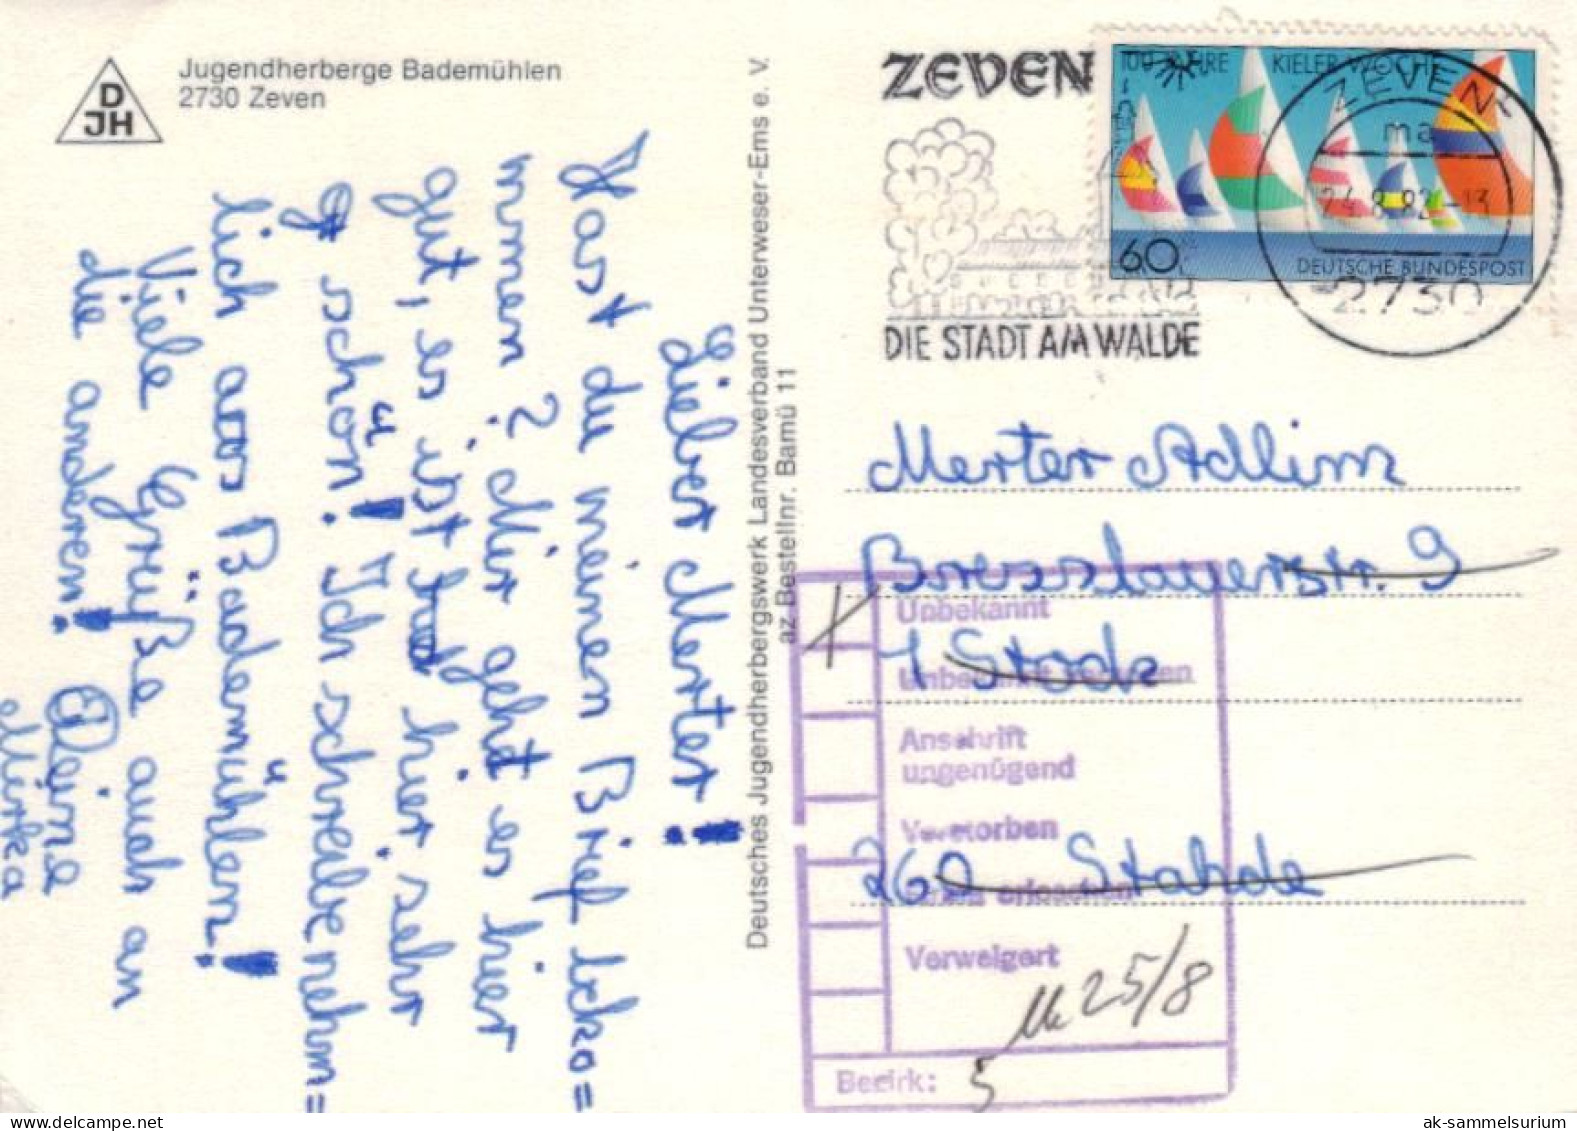 D
JH
Jugendherberge Bademühlen
2730 Zeven
Lieber Merter!
Hast du meinen Brief bko=
mmen? Mir geht es hier
gut, es ist hier sehr
schön! Ich schreibe nehm=
lich aus Bademühlen!
Viele Grüße auch an
die anderen! Deine
Merka
Deutsches Jugendherbergswerk Landesverband Unterweser-Ems e. V.
az Bestellnr. Bamü 11
ZEVEN
DIE STADT AM WALDE
100 JAHRE KIELER WOCHE
60
DEUTSCHE BUNDESPOST
ZEVEN
ma
24.8.82-13
2730
Merter Adlim
Bresslauerstr. 9
1 Stock
260 Stahde
Unbekannt
Unbekannt verzogen
Anschrift
ungenügend
Verstorben
Firma erloschen
Verweigert
25/8
Bezirk: 5
ak-sammelsurium.com